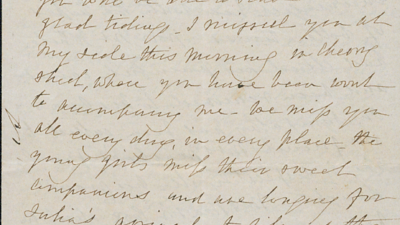 glad tidings. I missed you at
my side this morning in
street, where you have been wont
to accompany me - we miss you
all every day, in every place - the
young girls miss their sweet
companions and are longing for
Julia's